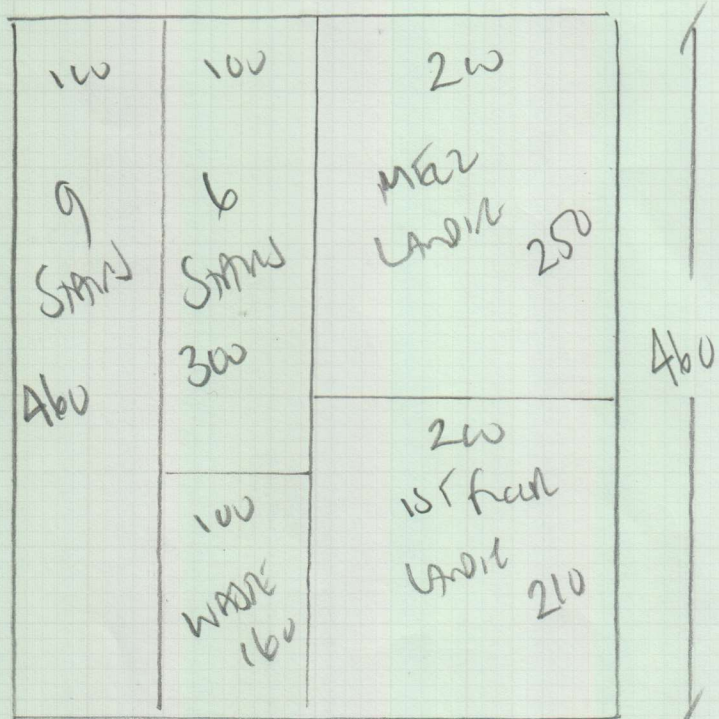 100
9
STAIRS
460
100
6
STAIRS
300
100
WASTE
160
200
MEZZ
LANDING
250
200
1ST FLOOR
LANDING
210
460